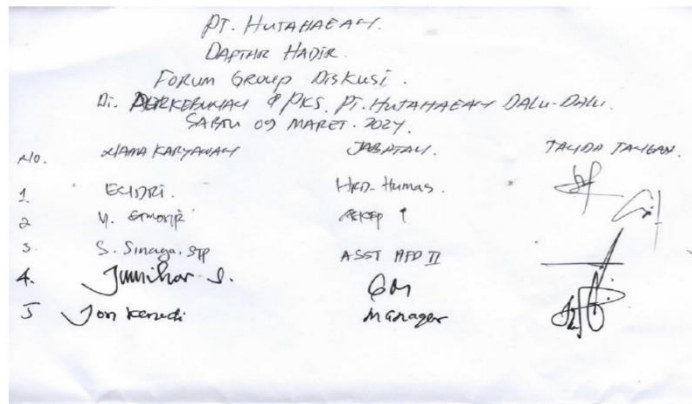 PT. HUTAHAEAN
DAFTAR HADIR.
FORUM GROUP DISKUSI.
Di. PERKEBUNAN & PKS. PT. HUTAHAEAN DALU-DALU.
SABTU 09 MARET. 2024.
NO. NAMA KARYAWAN JABATAN. TANDA TANGAN.
1 HRD-Humas.
2
3. S. Sinaga. STP ASST AFD II
4. Jumihar S. GM
5 Jon Kenedi Manager